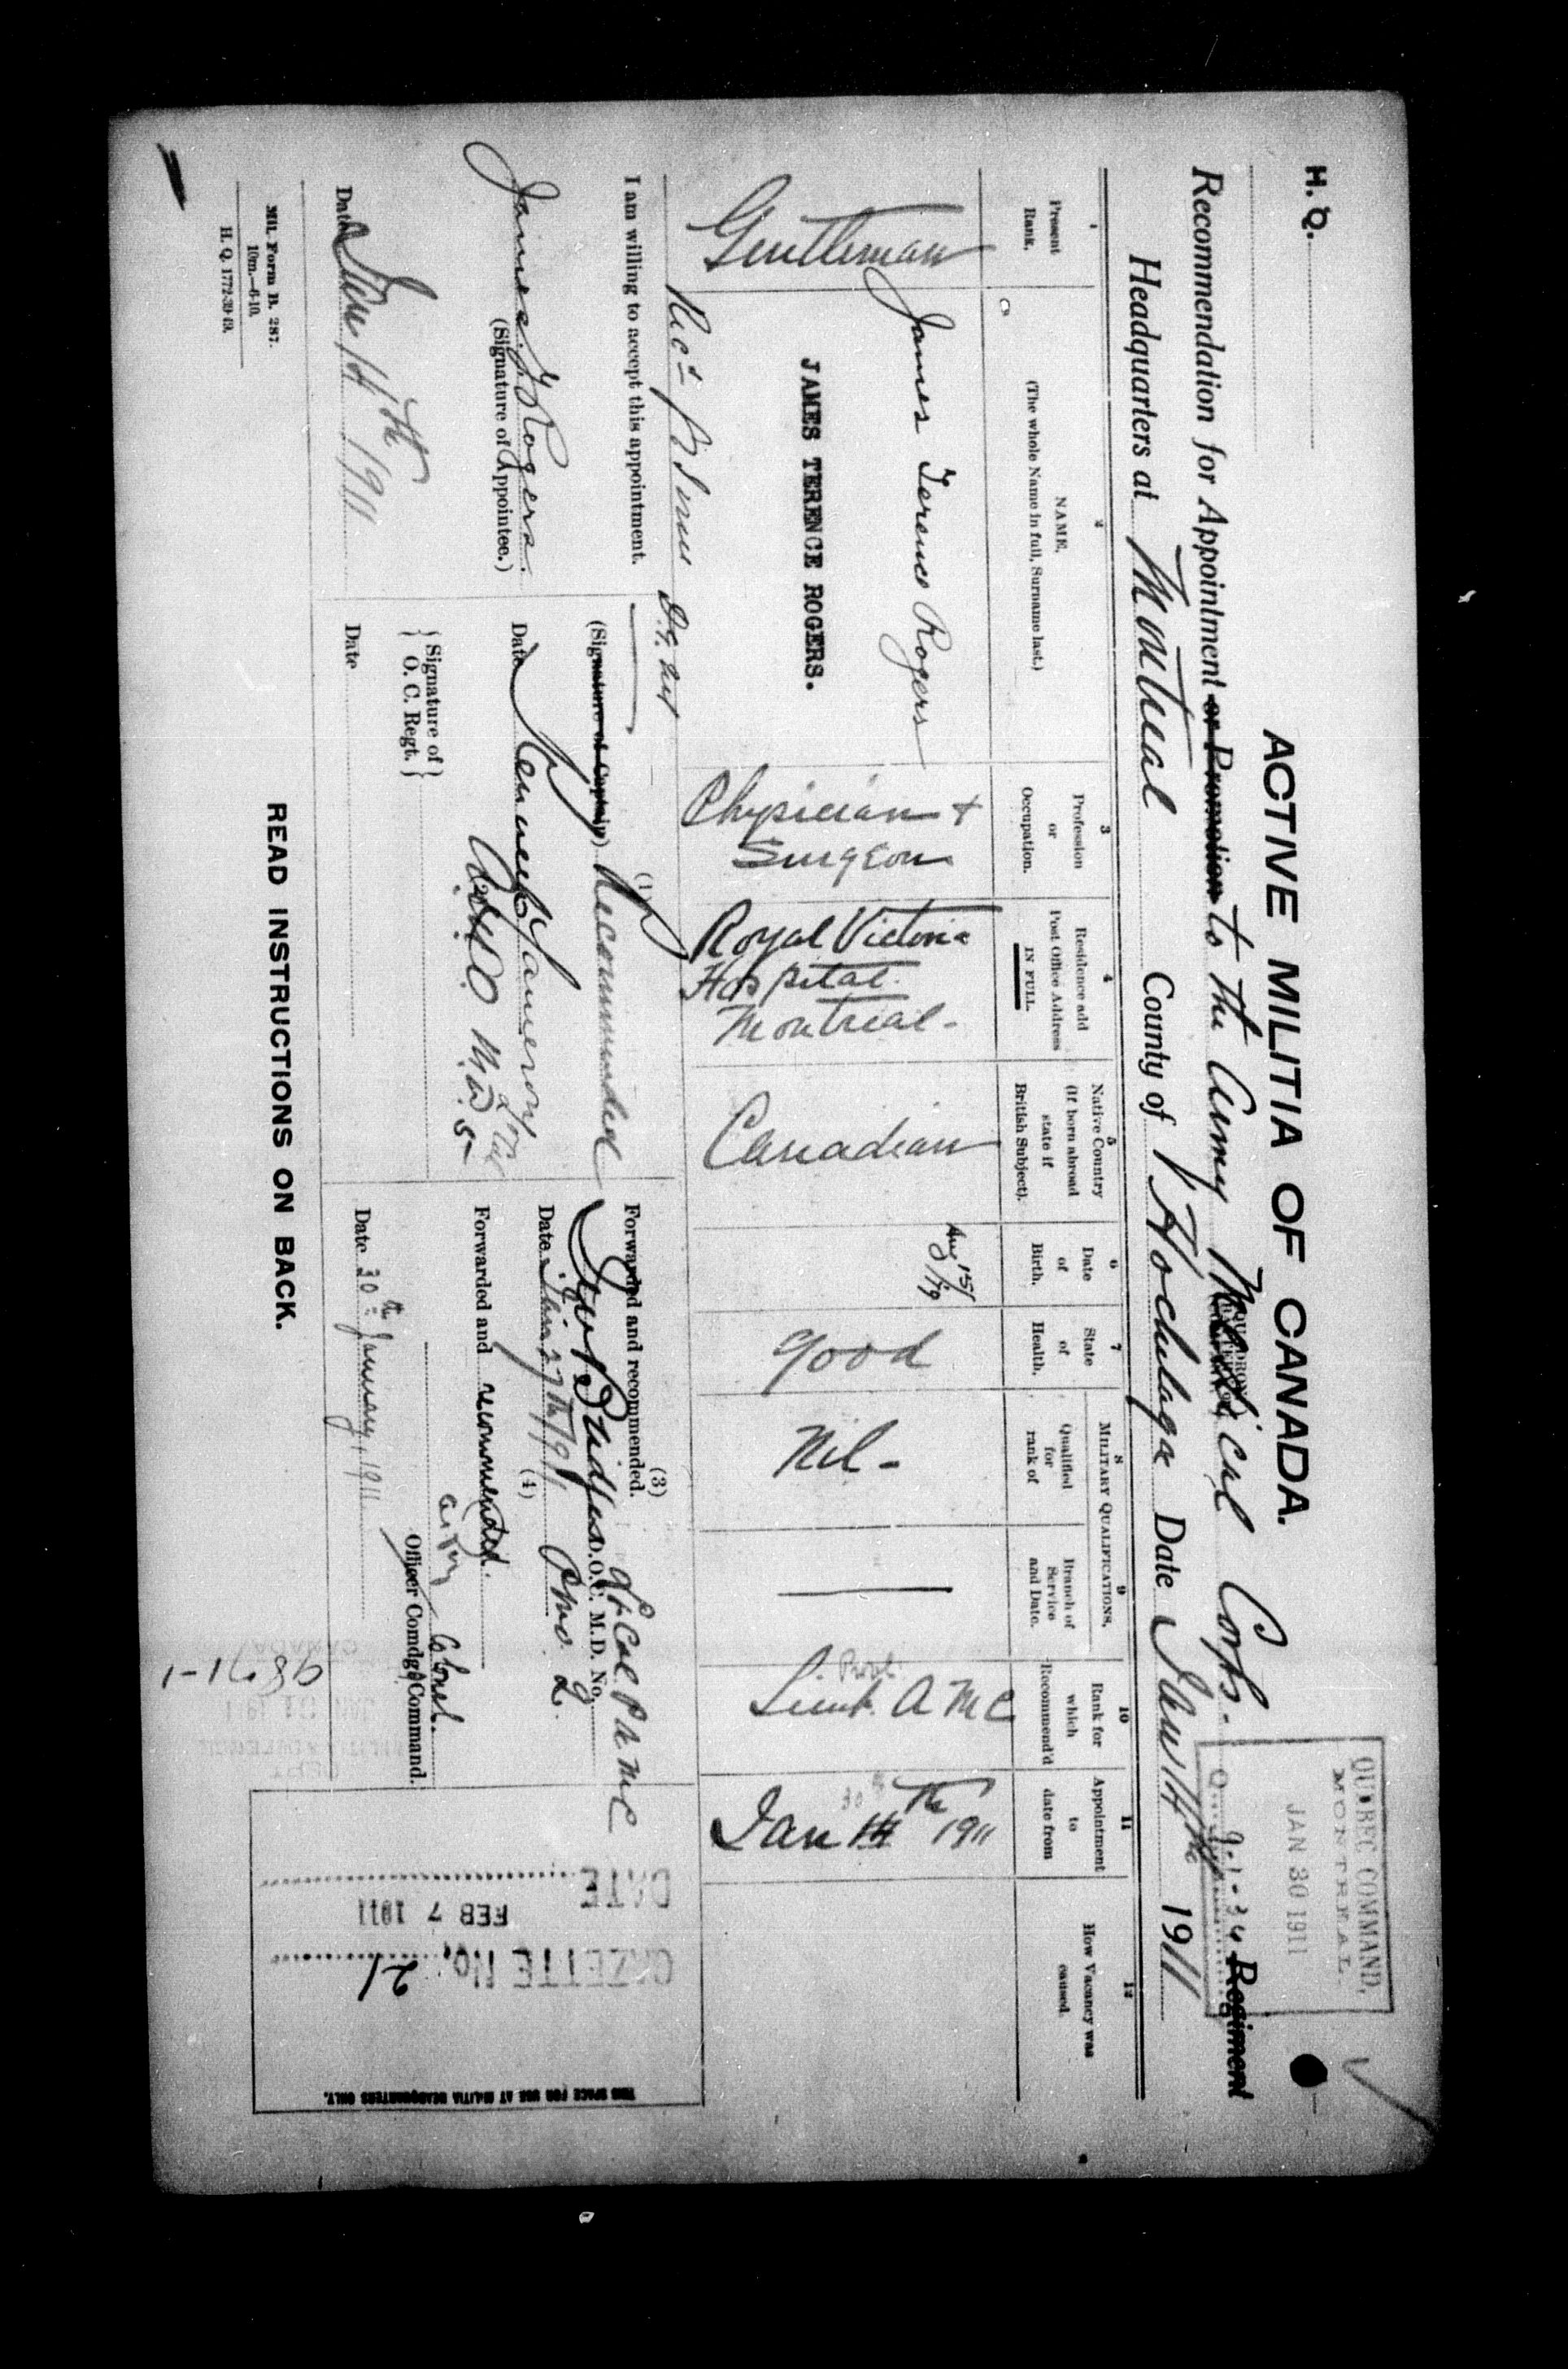 H. Q.
ACTIVE MILITIA OF CANADA.
QUEBEC COMMAND,
MONTREAL.
JAN 30 1911
9-1-34
Recommendation for Appointment or Promotion to the Army Medical Corps. Regiment
Headquarters at Montreal County of Hochelaga Date Jan 14th 1911
1
Present
Rank.
2
NAME.
(The whole Name in full, Surname last.)
3
Profession
or
Occupation.
4
Residence add
Post Office Address
IN FULL
5
Native Country
(If born abroad
state if
British Subject).
6
Date
of
Birth.
7
State
of
Health.
MILITARY QUALIFICATIONS.
8
Qualified
for
rank of
9
Branch of
Service
and Date.
10
Rank for
which
Recommend'd
11
Appointment
to
date from
12
How Vacancy was
caused.
Gentleman
James Terence Rogers
JAMES TERENCE ROGERS.
Physician +
Surgeon
Royal Victoria
Hospital.
Montreal-
Canadian
Aug 15/
good
Nil-
Prov.
Lieut. A M C
Jan 14th 1911
I am willing to accept this appointment.
James T Rogers.
(Signature of Appointee.)
Date Jan 14th 1911
(1)
(Signature of Captain) Recommended
Date Kenneth Cameron
(2)
{Signature of}
{O. C. Regt.}
Date
(3)
Forwarded and recommended.
Lt Col P A M C
D.O.C. M.D. No.
Date Jan 27th/911 P.M.O. 2.
(4)
Forwarded and recommended.
Colonel.
Officer Comdg. Command.
Date 30th January, 1911
98-71-1
GAZETTE No. 21
FEB 7 1911
DATE
THIS SPACE FOR USE AT MILITIA HEADQUARTERS ONLY.
Mil. Form B. 287.
10m.—6-10.
H. Q. 1772-39-49.
READ INSTRUCTIONS ON BACK.